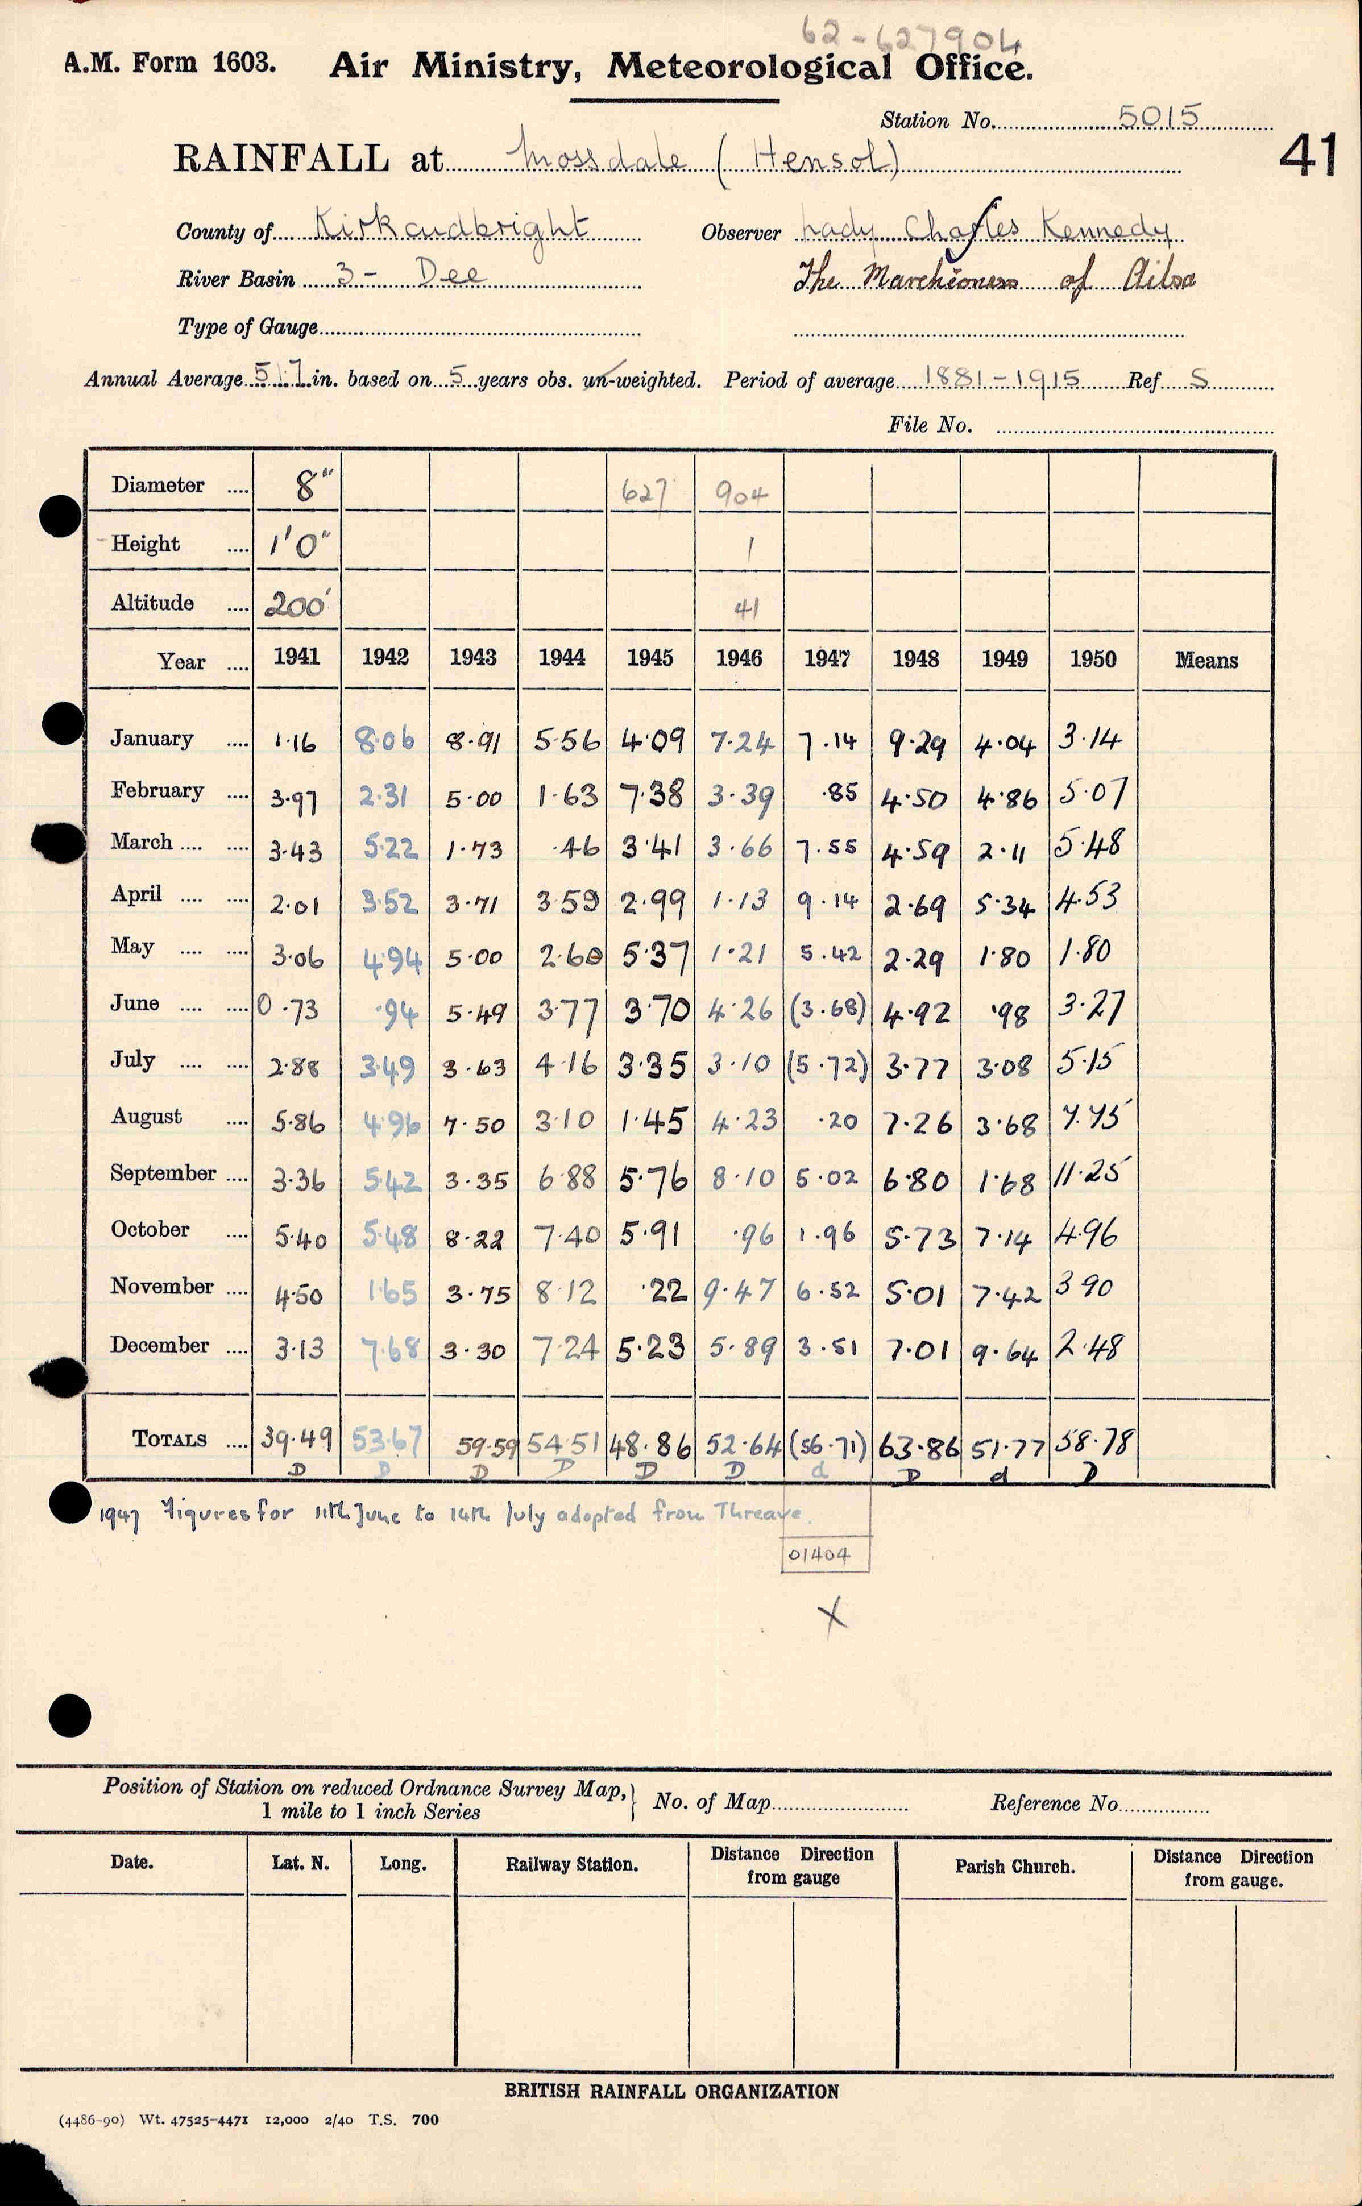 62-627904
A.M. Form 1603. Air Ministry, Meteorological Office.
Station No. 5015
41
RAINFALL at Mossdale (Hensol)
County of Kirkcudbright Observer Lady Charles Kennedy
River Basin 3- Dee The Marchioness of Ailsa
Type of Gauge
Annual Average 51.7 in. based on 5 years obs. un-weighted. Period of average 1881-1915 Ref S
File No.
Diameter .... 8" 627 904
Height .... 1'0" 1
Altitude .... 200' 41
Year .... 1941 1942 1943 1944 1945 1946 1947 1948 1949 1950 Means
January .... 1.16 8.06 8.91 5.56 4.09 7.24 7.14 9.29 4.04 3.14
February .... 3.97 2.31 5.00 1.63 7.38 3.39 .85 4.50 4.86 5.07
March .... .... 3.43 5.22 1.73 .46 3.41 3.66 7.55 4.59 2.11 5.48
April .... .... 2.01 3.52 3.71 3.59 2.99 1.13 9.14 2.69 5.34 4.53
May .... .... 3.06 4.94 5.00 2.60 5.37 1.21 5.42 2.29 1.80 1.80
June .... .... 0.73 .94 5.49 3.77 3.70 4.26 (3.68) 4.92 .98 3.27
July .... .... 2.88 3.49 3.63 4.16 3.35 3.10 (5.72) 3.77 3.08 5.15
August .... 5.86 4.96 7.50 3.10 1.45 4.23 .20 7.26 3.68 7.75
September .... 3.36 5.42 3.35 6.88 5.76 8.10 5.02 6.80 1.68 11.25
October .... 5.40 5.48 8.22 7.40 5.91 .96 1.96 5.73 7.14 4.96
November .... 4.50 1.65 3.75 8.12 .22 9.47 6.52 5.01 7.42 3.90
December .... 3.13 7.68 3.30 7.24 5.23 5.89 3.51 7.01 9.64 2.48
TOTALS .... 39.49 53.67 59.59 54.51 48.86 52.64 (56.71) 63.86 51.77 58.78
D D D D D D d D d D
1947 Figures for 11th June to 14th July adopted from Threave.
01404
X
Position of Station on reduced Ordnance Survey Map,} No. of Map Reference No.
1 mile to 1 inch Series
Date. Lat. N. Long. Railway Station. Distance Direction from gauge Parish Church. Distance Direction from gauge.
BRITISH RAINFALL ORGANIZATION
(4486-90) Wt. 47525-4471 12,000 2/40 T.S. 700